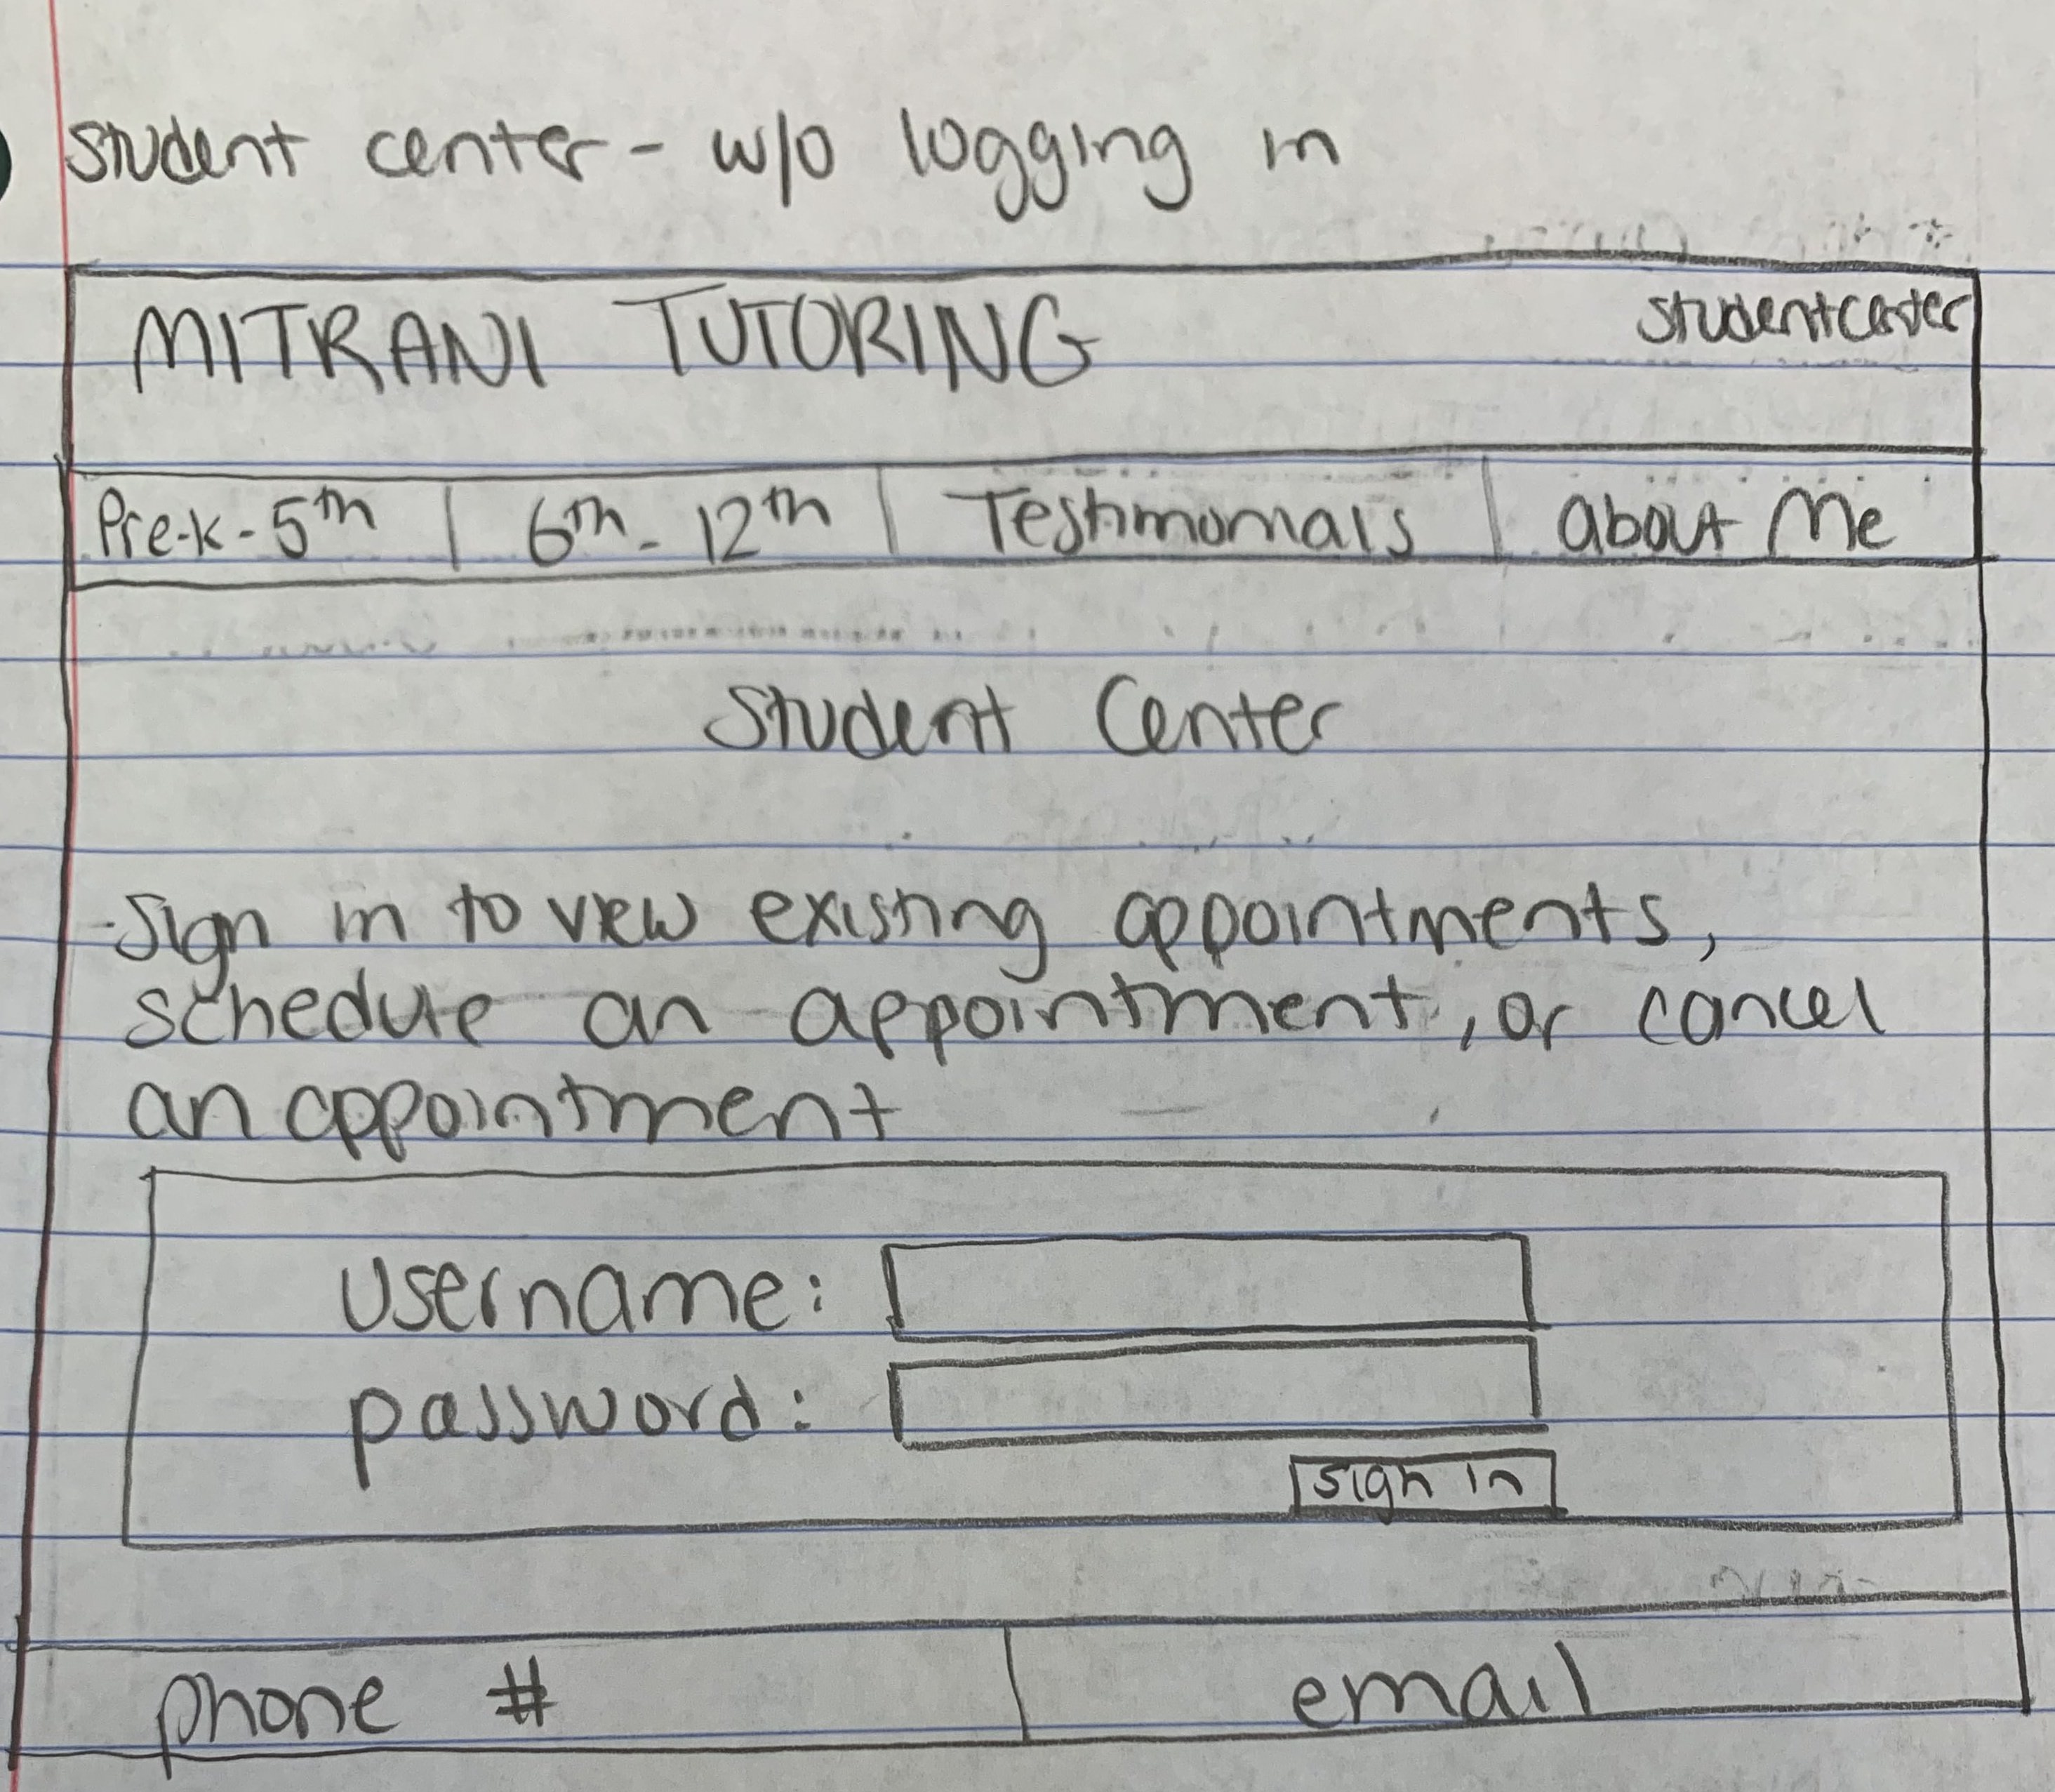 Student center - w/o logging in
MITRANI TUTORING
studentcenter
Pre-k-5th | 6th-12th | Testimonials | About Me
Student Center
-Sign in to view existing appointments,
schedule an appointment, or cancel
an appointment
username:
password:
sign in
phone #
email